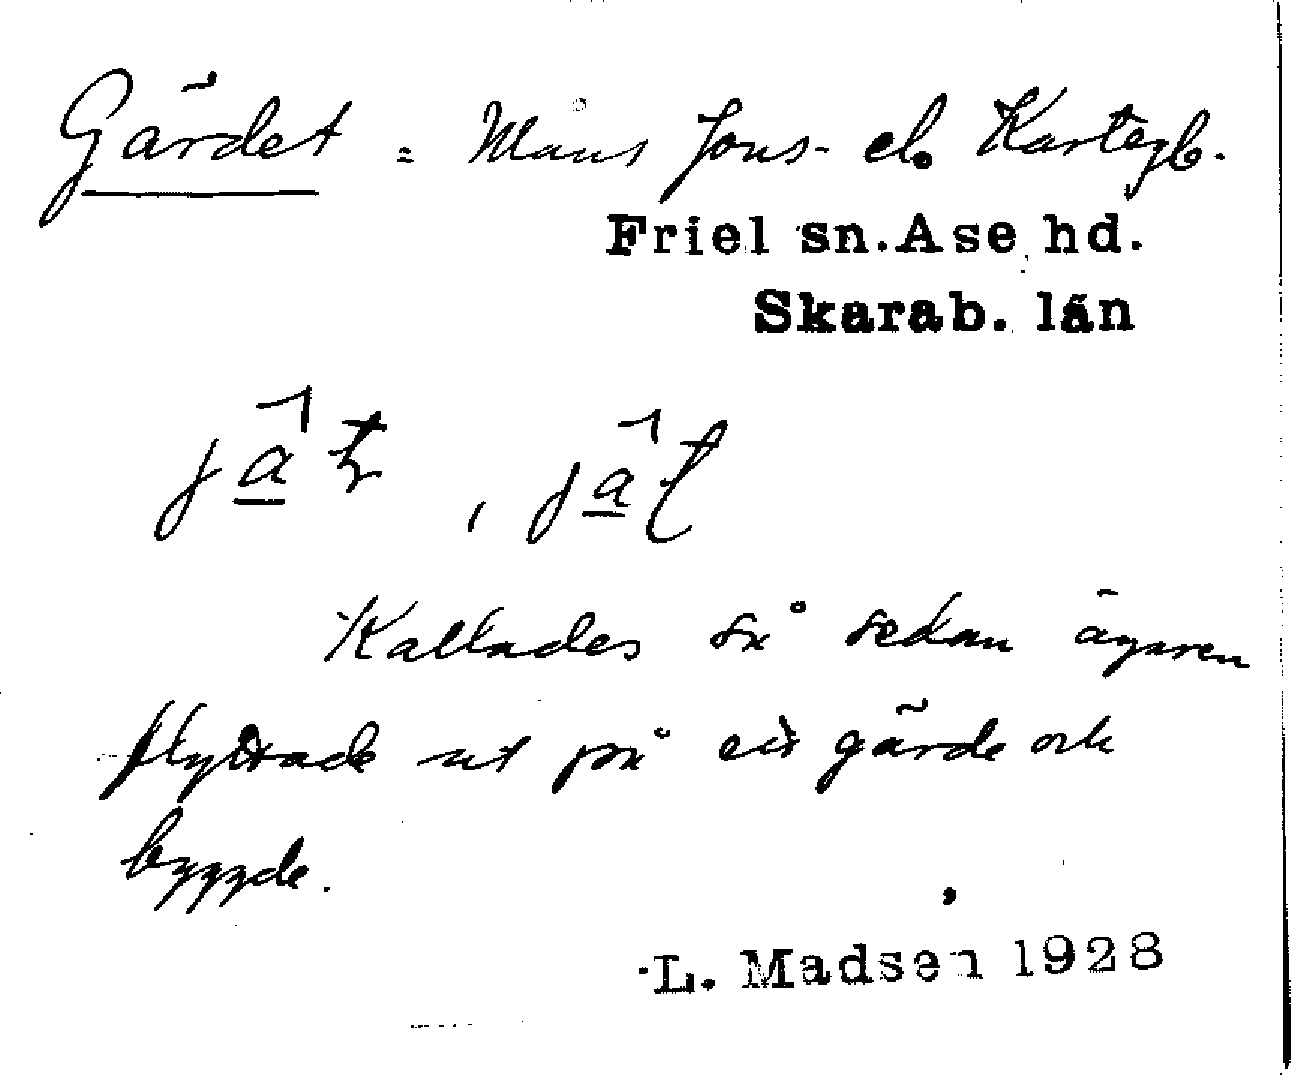 Gärdet = Måns Jons- el.
Friel sn. Åse hd.
Skarab. län
Kallades så sedan ägaren
flyttade ut på ett gärde och
byggde.
L. Madsen 1928